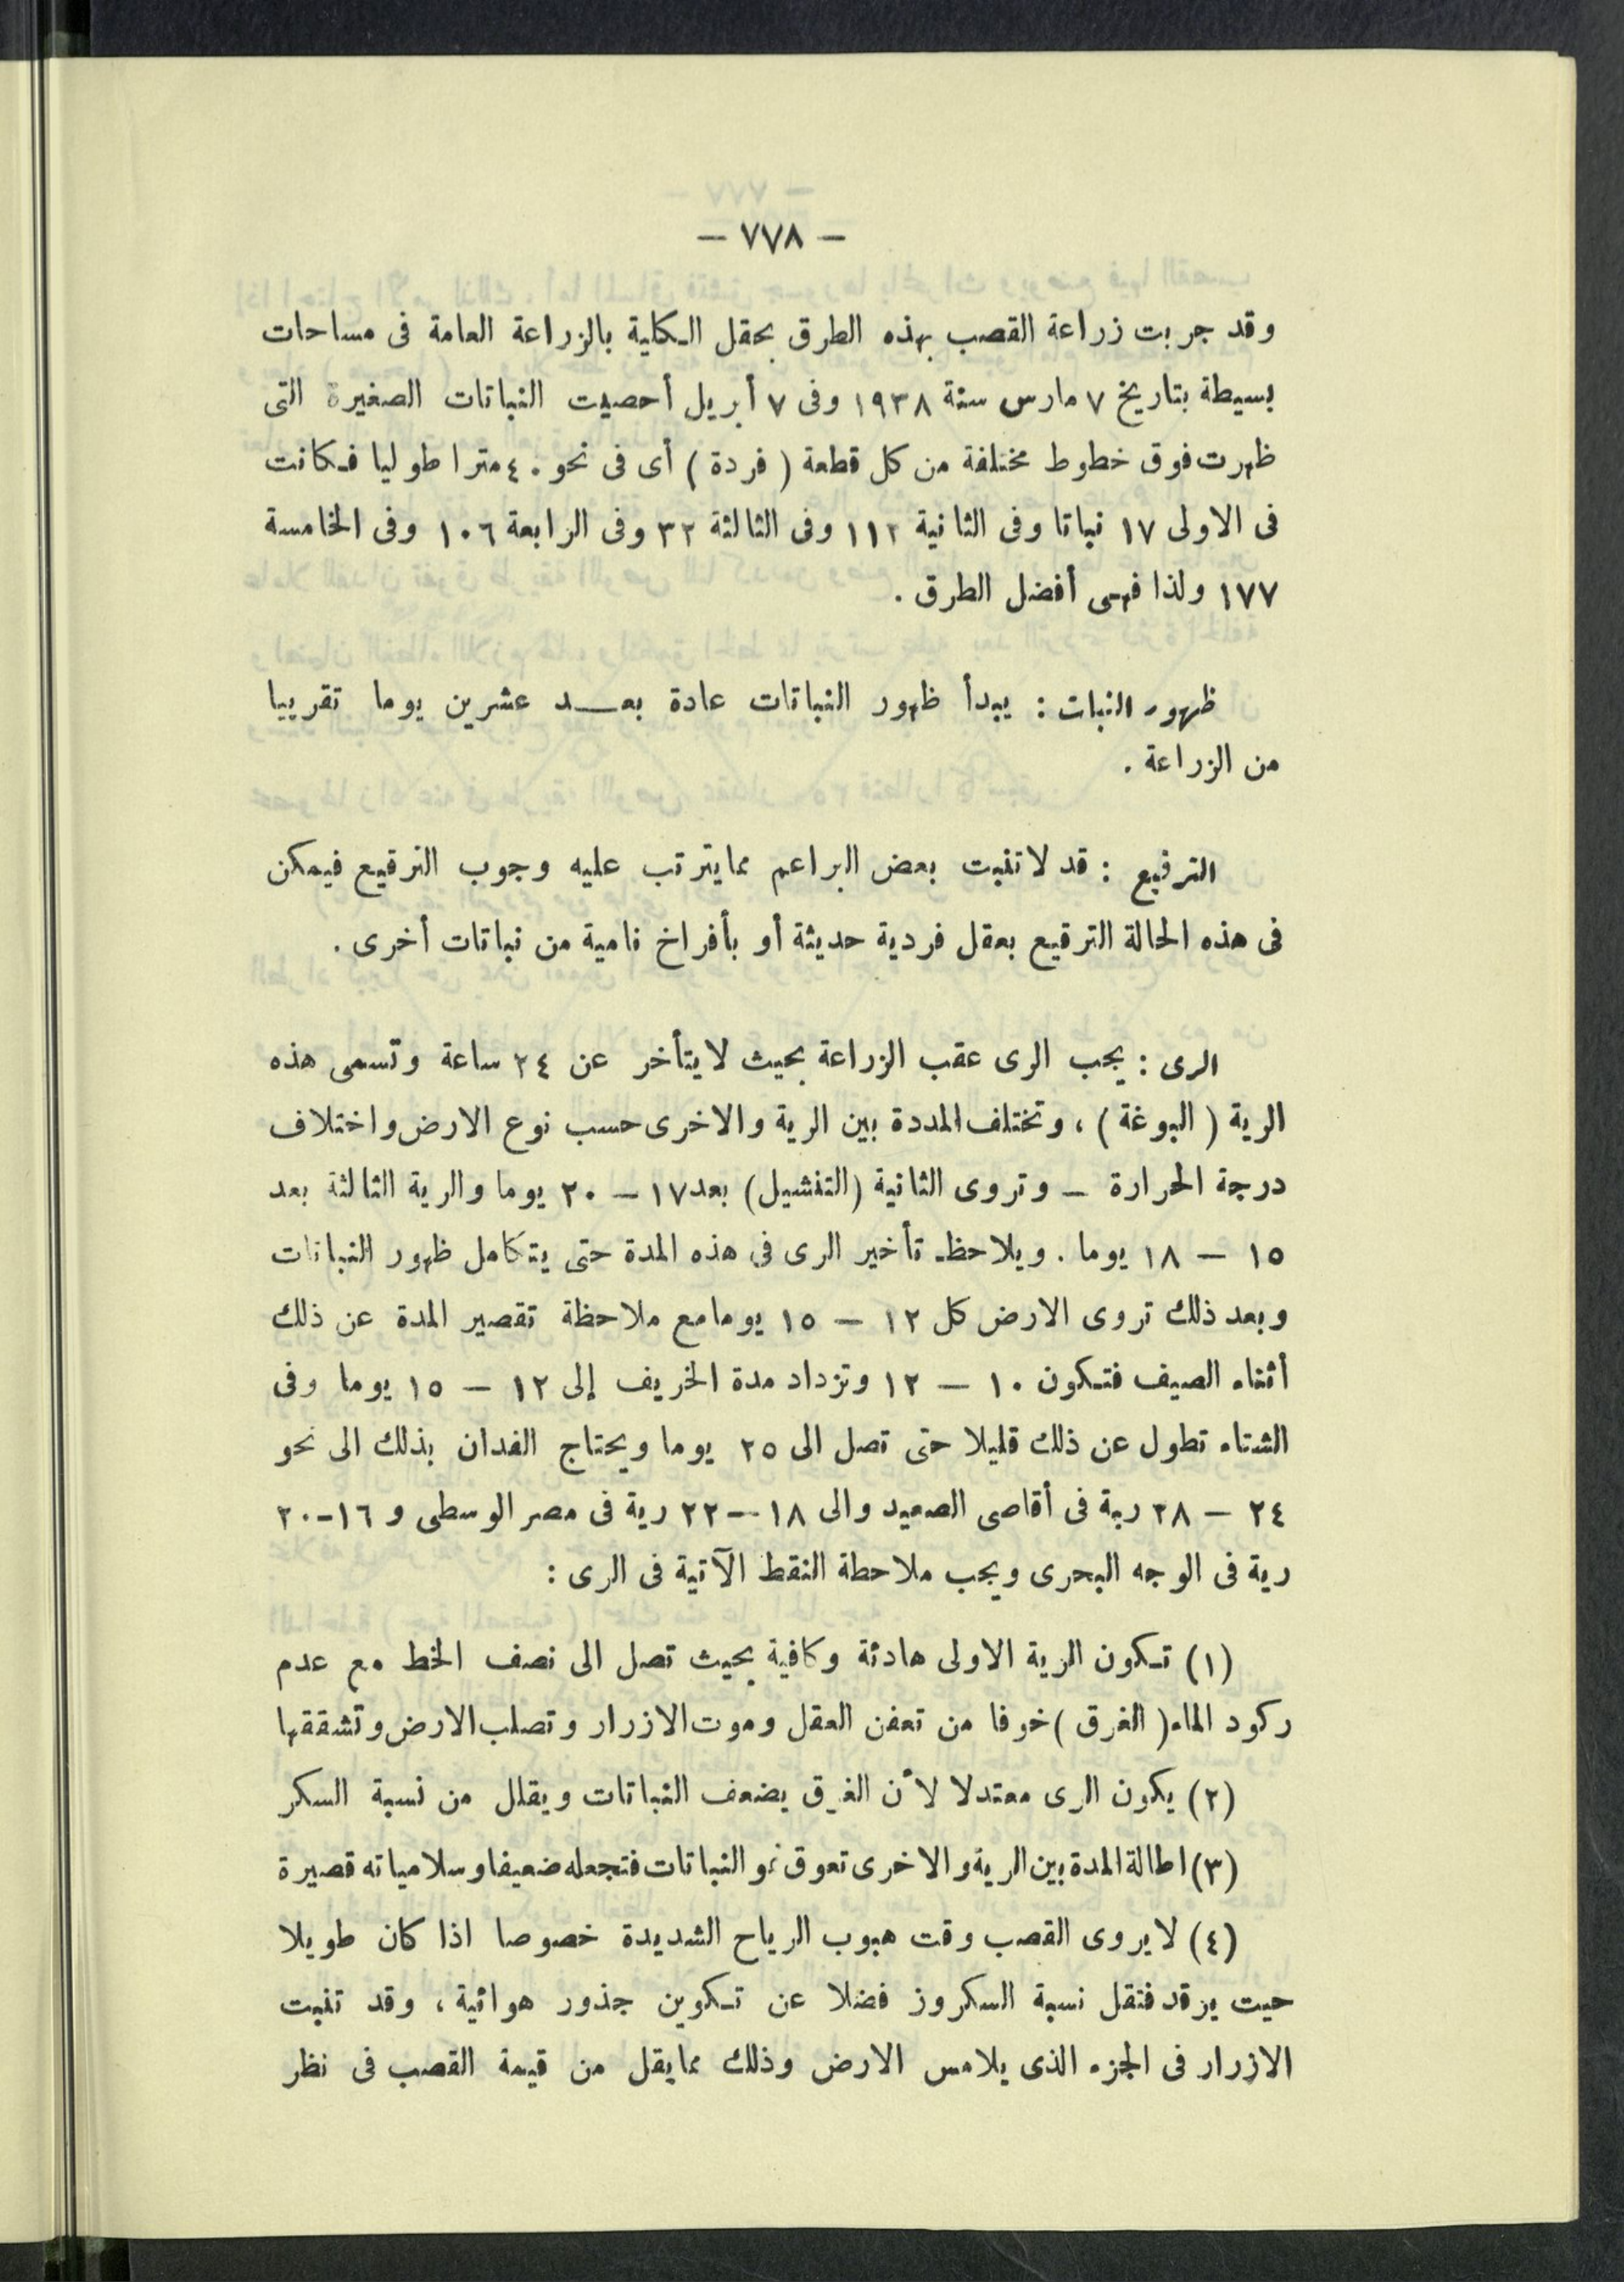 — ٧٧٨ —
وقد جربت زراعة القصب بهذه الطرق بحقل الكلية بالزراعة العامة فى مساحات
بسيطة بتاريخ ٧ مارس سنة ١٩٣٨ وفى ٧ أبريل أحصيت النباتات الصغيرة التى
ظهرت فوق خطوط مختلفة من كل قطعة ( فردة ) أى فى نحو ٤٠ مترا طوليا فكانت
فى الاولى ١٧ نباتا وفى الثانية ١١٢ وفى الثالثة ٣٢ وفى الرابعة ١٠٦ وفى الخامسة
١٧٧ ولذا فهى أفضل الطرق .
ظهور النبات : يبدأ ظهور النباتات عادة بعد عشرين يوما تقريبا
من الزراعة .
الترقيع : قد لا تنبت بعض البراعم مما يترتب عليه وجوب الترقيع فيمكن
فى هذه الحالة الترقيع بعقل فردية حديثة أو بأفراخ نامية من نباتات أخرى .
الرى : يجب الرى عقب الزراعة بحيث لا يتأخر عن ٢٤ ساعة وتسمى هذه
الرية ( البوغة ) ، وتختلف المددة بين الرية والاخرى حسب نوع الارض واختلاف
درجة الحرارة – وتروى الثانية (التنشيل) بعد ١٧ – ٢٠ يوما والرية الثالثة بعد
١٥ – ١٨ يوما . ويلاحظ تأخير الرى فى هذه المدة حتى يتكامل ظهور النباتات
وبعد ذلك تروى الارض كل ١٢ – ١٥ يوما مع ملاحظة تقصير المدة عن ذلك
أثناء الصيف فتكون ١٠ – ١٢ وتزداد مدة الخريف إلى ١٢ – ١٥ يوما وفى
الشتاء تطول عن ذلك قليلا حتى تصل الى ٢٥ يوما ويحتاج الفدان بذلك الى نحو
٢٤ – ٢٨ رية فى أقاصى الصعيد والى ١٨ – ٢٢ رية فى مصر الوسطى و ١٦-٢٠
رية فى الوجه البحرى ويجب ملاحطة النقط الآتية فى الرى :
(١) تكون الرية الاولى هادئة وكافية بحيث تصل الى نصف الخط مع عدم
ركود الماء ( الغرق ) خوفا من تعفن العقل وموت الازرار وتصلب الارض وتشققها
(٢) يكون الرى معتدلا لأن الغرق يضعف النباتات ويقلل من نسبة السكر
(٣) اطالة المدة بين الرية والاخرى تعوق نمو النباتات فتجعله ضعيفا وسلامياته قصيرة
(٤) لا يروى القصب وقت هبوب الرياح الشديدة خصوصا اذا كان طويلا
حيت يرقد فتقل نسبة السكروز فضلا عن تكوين جذور هوائية ، وقد تنبت
الازرار فى الجزء الذى يلامس الارض وذلك مما يقلل من قيمة القصب فى نظر